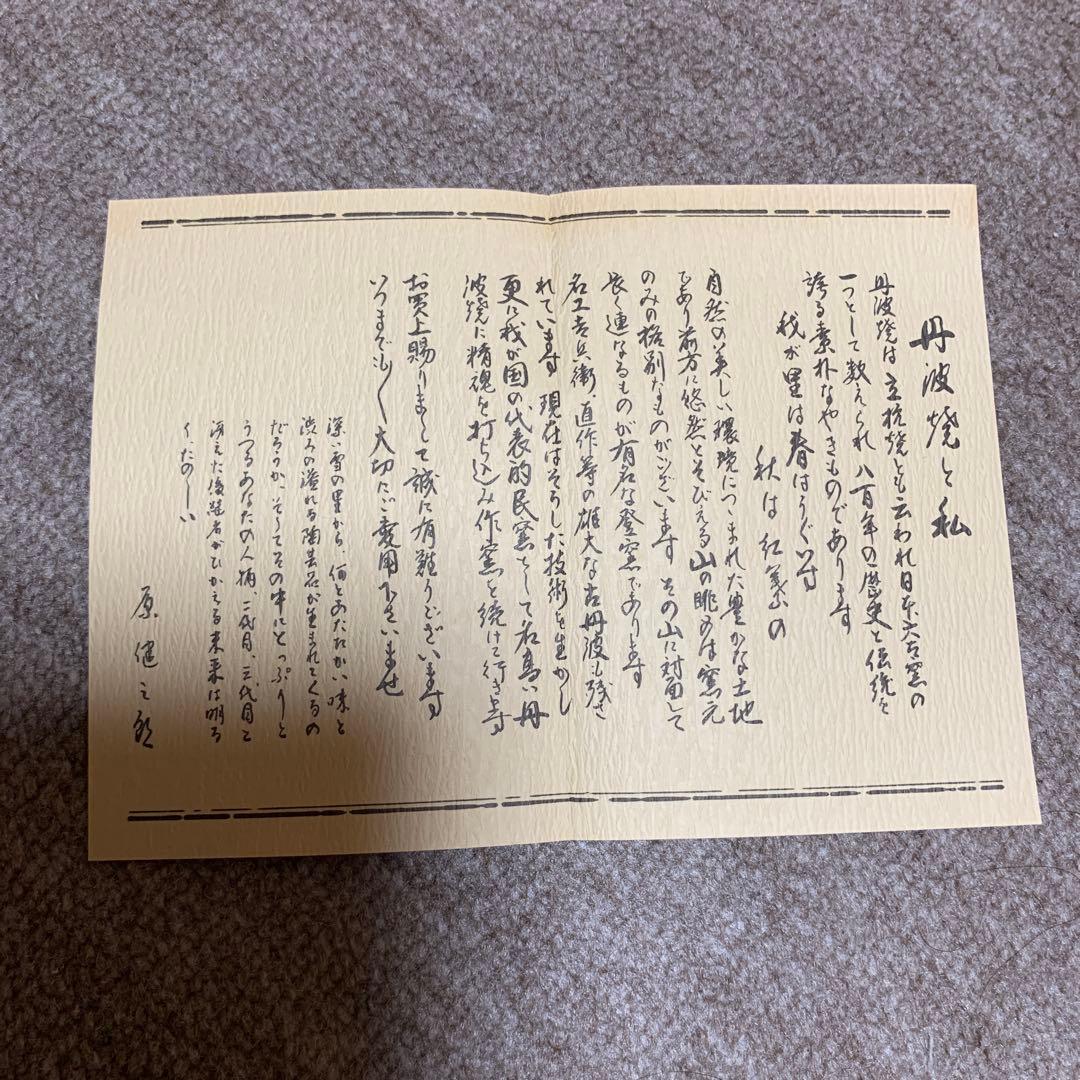 丹波焼と私
丹波焼は立杭焼とも云われ日本六古窯の
一つとして数えられ八百年の歴史と伝統を
誇る素朴なやきものであります
我が里は春はうぐいす
秋は紅葉の
自然の美しい環境につゝまれた豊かな土地
であり前方に悠然とそびえる山の眺めは窯元
のみの格別なものがございます その山に対面して
長く連なるものが有名な登窯であります
名工 直作等の雄大な古丹波も残さ
れています 現在はそうした技術を生かし
更に我が国の代表的民窯として名高い丹
波焼に精魂を打ち込み作窯を続けて行きます
お買上賜りまして誠に有難うございます
いつまでも〱大切にご愛用下さいませ
深い雪の里から、何とあたたかい味と
渋みの溢れる陶芸品が生まれてくるの
だろうか、そしてその中にとっぷりと
うつるあなたの人柄、二代目、三代目と
冴えた後継者がひかえる未来は明る
くたのしい
原健三郎